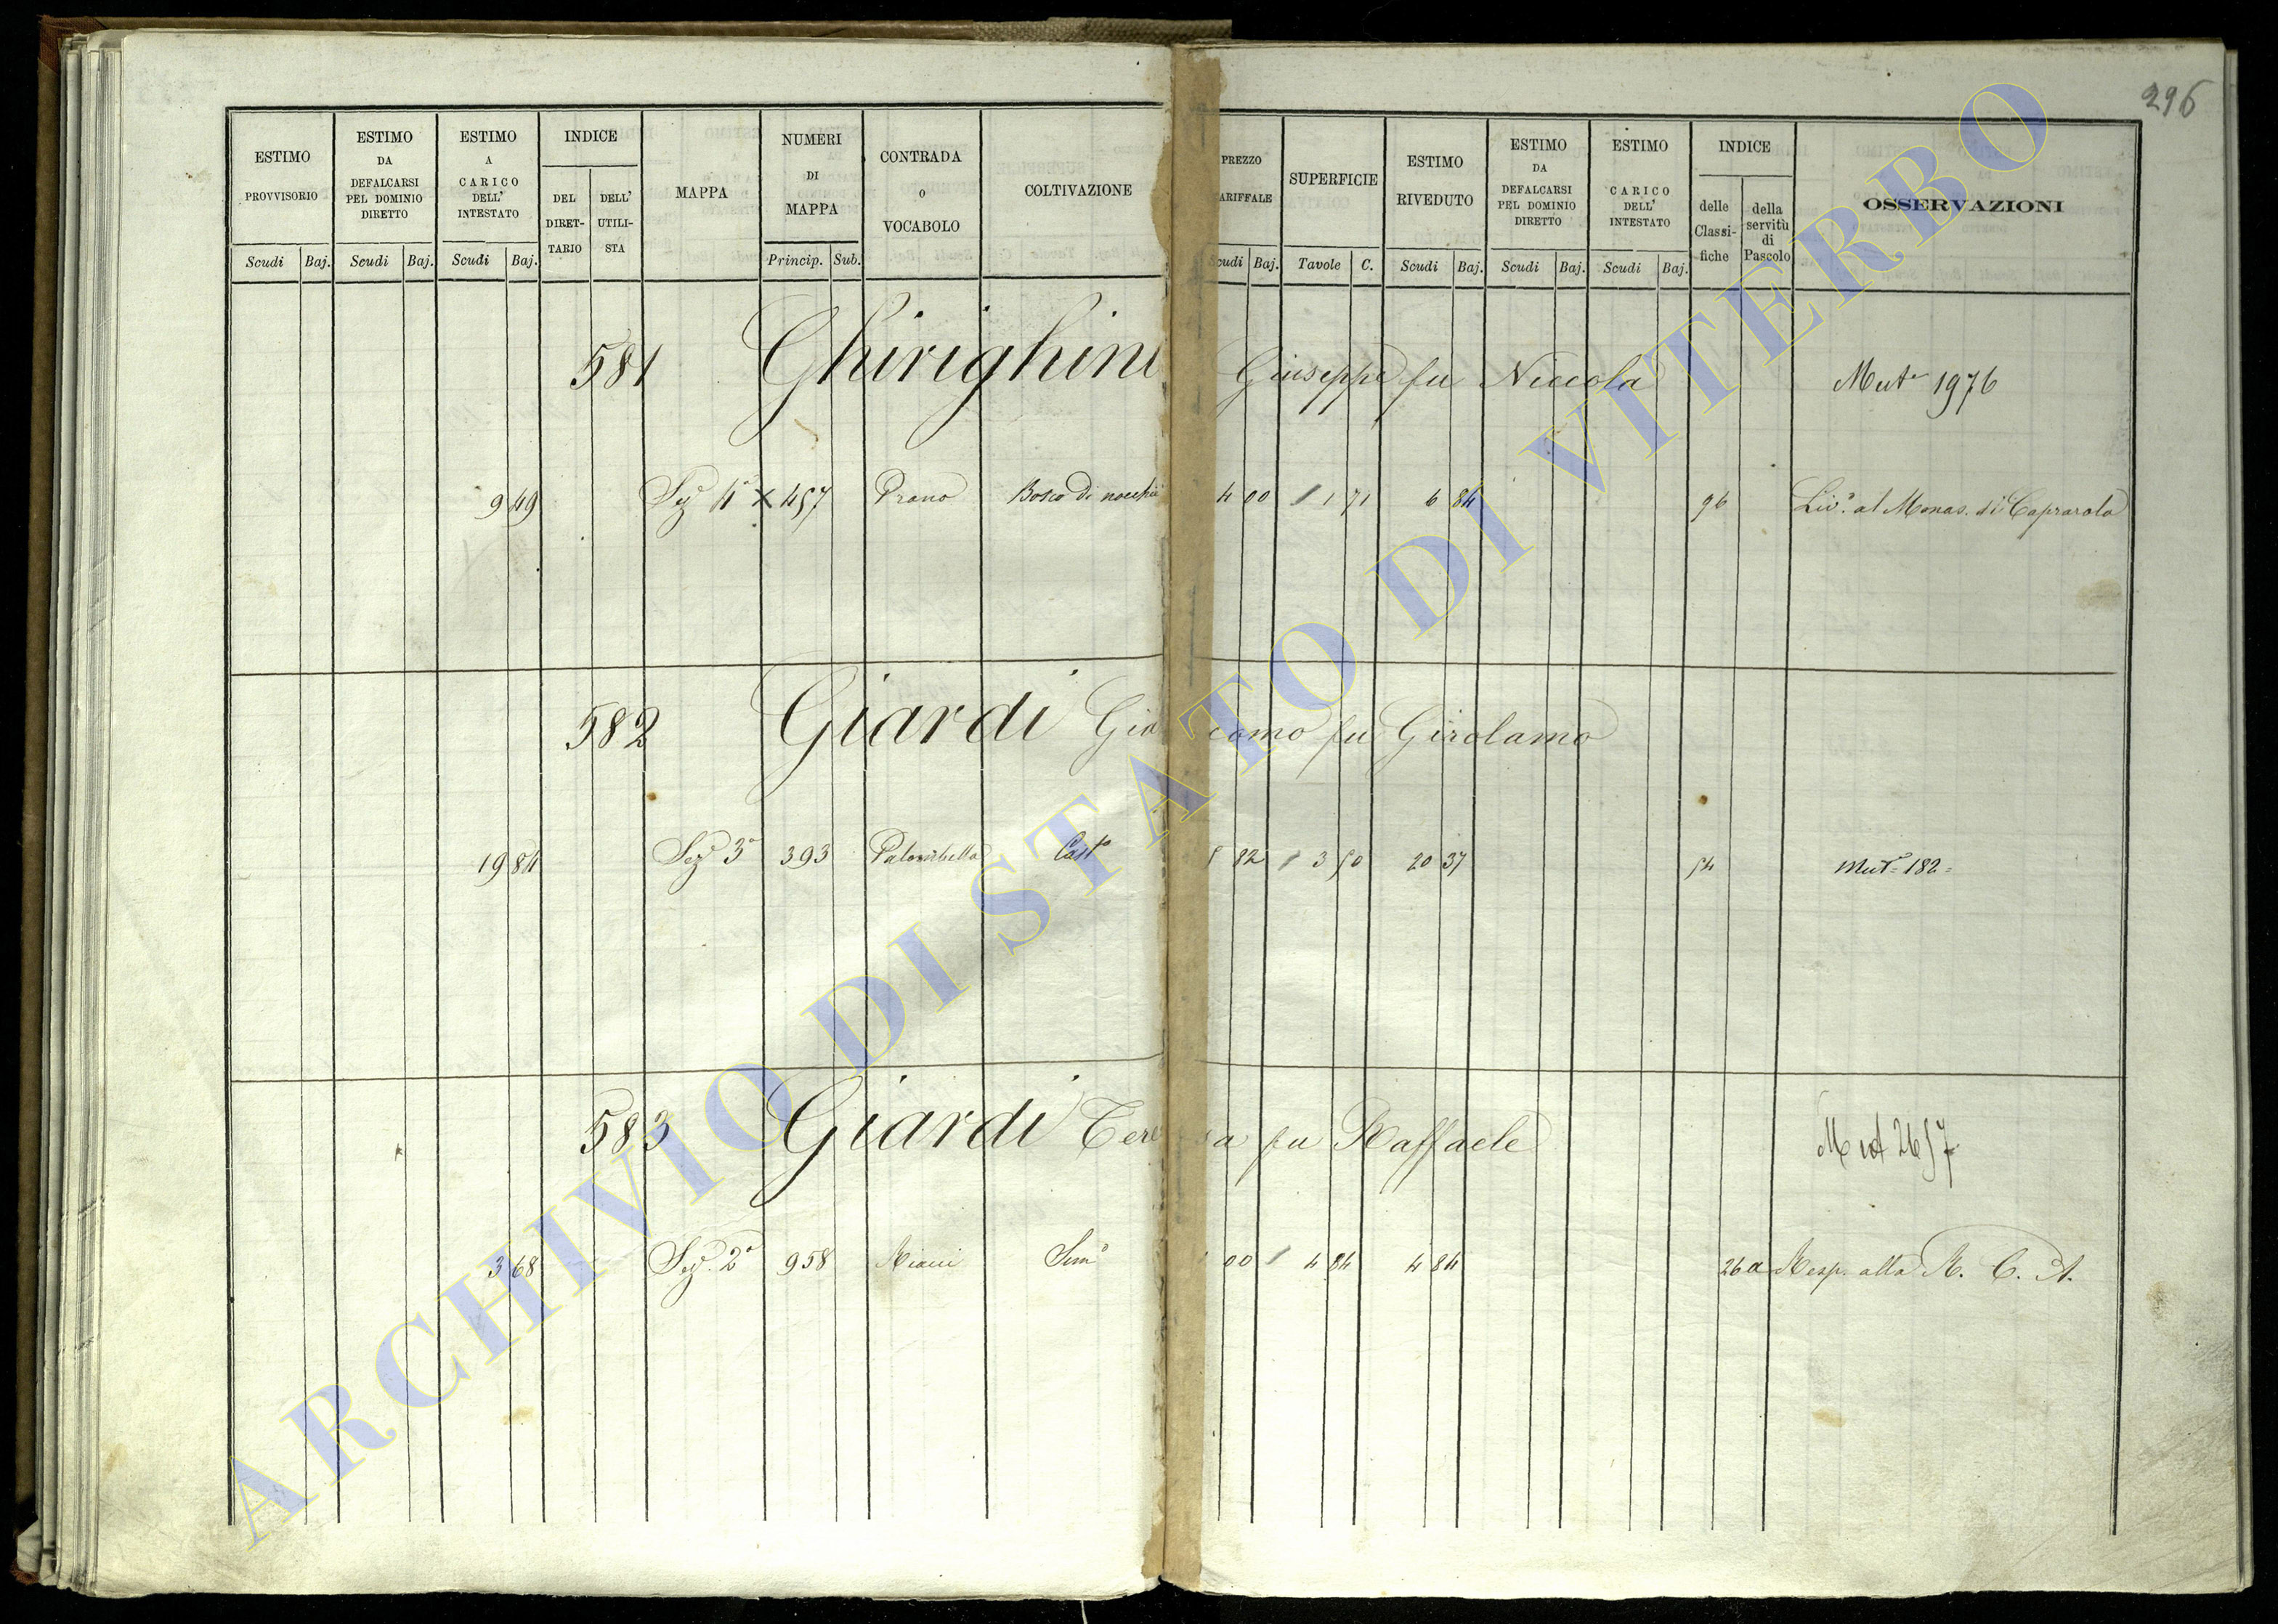 296
ESTIMO PROVVISORIO Scudi Baj.
ESTIMO DA DEFALCARSI PEL DOMINIO DIRETTO Scudi Baj.
ESTIMO A CARICO DELL' INTESTATO Scudi Baj.
INDICE DEL DIRET-TARIO DELL' UTILI-STA
MAPPA
NUMERI DI MAPPA Princip. Sub.
CONTRADA O VOCABOLO
COLTIVAZIONE
PREZZO ARIFFALE Scudi Baj.
SUPERFICIE Tavole C.
ESTIMO RIVEDUTO Scudi Baj.
ESTIMO DA DEFALCARSI PEL DOMINIO DIRETTO Scudi Baj.
ESTIMO CARICO DELL' INTESTATO Scudi Baj.
INDICE delle Classi-fiche della servitù di Pascolo
OSSERVAZIONI
581 Ghirighini Giuseppe fu Niccola Mut.e 1976
9 49 Sez.e 4a × 457 Prano Bosco di nocchie 4 00 1 71 6 84 96 Liv.o al Monas. di Caprarola
582 Giardi Giacomo fu Girolamo
19 84 Sez.e 3a 393 Palombella Cast.o 5 82 3 50 20 37 54 Mut.e 182=
583 Giardi Teresa fu Raffaele Mut 2657
3 68 Sez.e 2a 958 Sem.o 00 4 84 4 84 26 a Resp. alla R. C. A.
ARCHIVIO DI STATO DI VITERBO